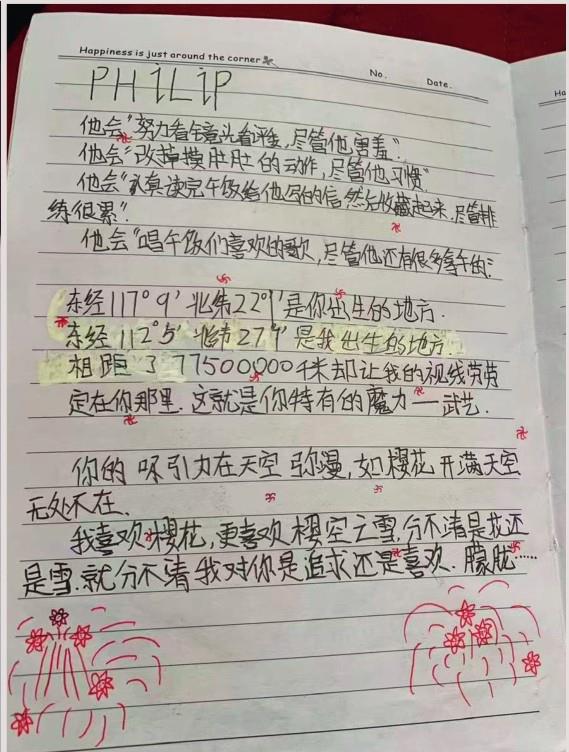 Happiness is just around the corner
No. Date.
Ha
PHiLiP
他会"努力看全竟光看评委,尽管他害羞".
他会"改掉摸肚肚的动作,尽管他习惯"
他会"认真读完午饭给他写的信然后收藏起来,尽管排
练很累".
他会"唱午饭们喜欢的歌,尽管他还有很多
东经117°9′ 北纬22°9′是你出生的地方.
东经 112°5′ 北纬27°9′ 是我出生的地方.
相距 3 77500000千米却让我的视线劳劳
定在你那里.这就是你特有的魔力——武艺.
你的 吸引力在天空 弥漫,如樱花 开满天空
无处不在.
我喜欢樱花,更喜欢樱空之雪.分不清是花还
是雪.就分不清我对你是追求还是喜欢.朦胧……